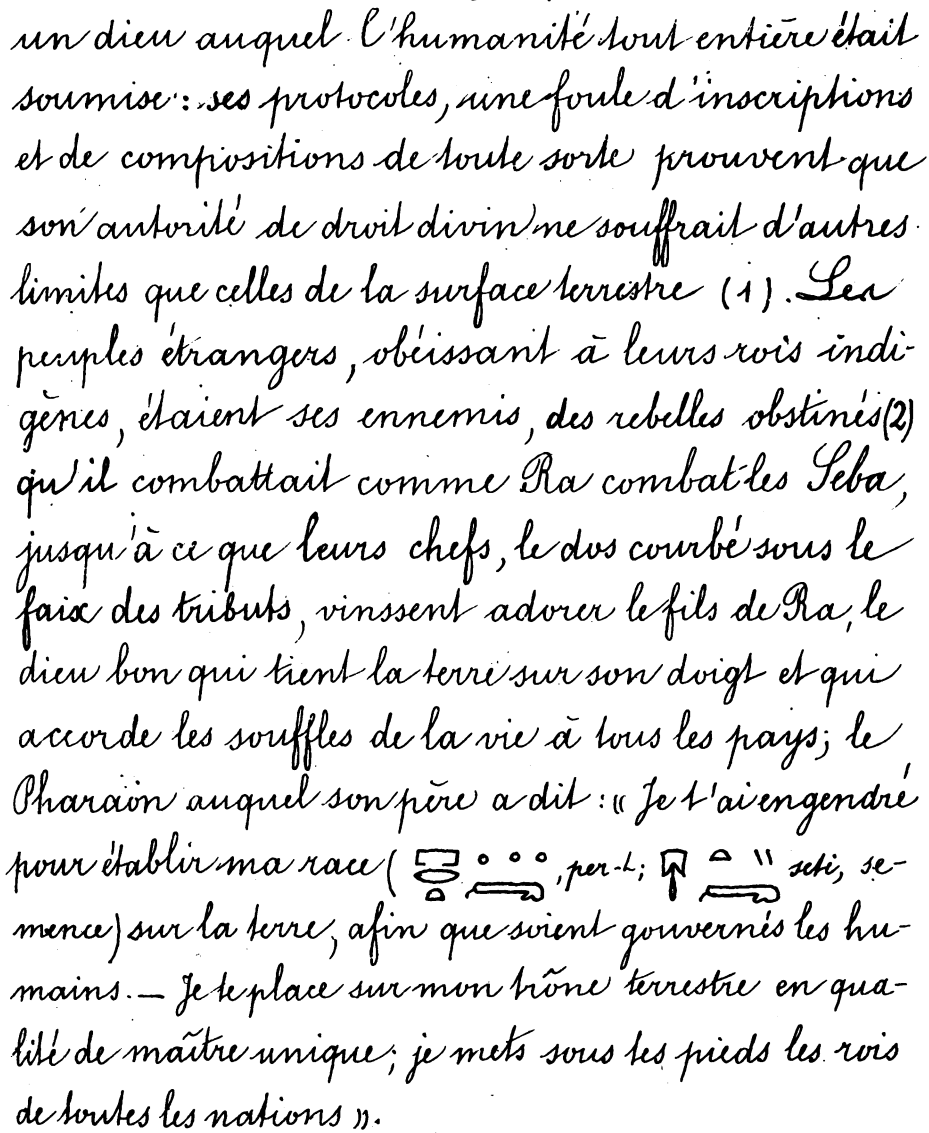 un dieu auquel l'humanité tout entière était
soumise : ses protocoles, une foule d'inscriptions
et de compositions de toute sorte prouvent que
son autorité de droit divin ne souffrait d'autres
limites que celles de la surface terrestre (1). Les
peuples étrangers, obéissant à leurs rois indi-
gènes, étaient ses ennemis, des rebelles obstinés (2)
qu'il combattait comme Ra combat les Seba,
jusqu'à ce que leurs chefs, le dos courbé sous le
faix des tributs, vinssent adorer le fils de Ra, le
dieu bon qui tient la terre sur son doigt et qui
accorde les souffles de la vie à tous les pays; le
Pharaon auquel son père a dit : « Je t'ai engendré
pour établir ma race ( , per-t; seti, se-
mence) sur la terre, afin que soient gouvernés les hu-
mains. — Je te place sur mon trône terrestre en qua-
lité de maître unique; je mets sous tes pieds les rois
de toutes les nations ».